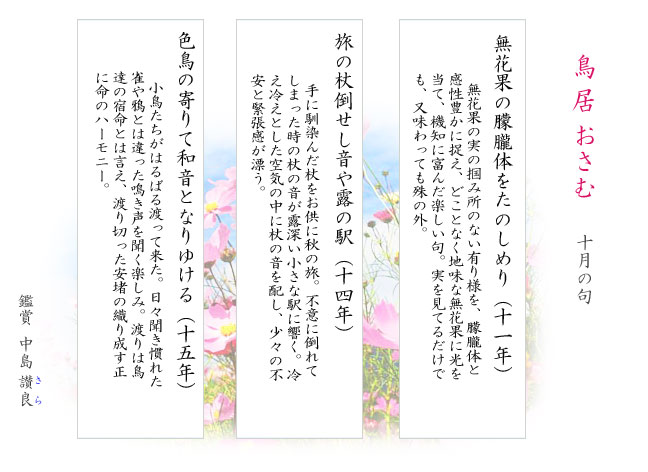 鳥居おさむ
十月の句
無花果の朦朧体をたのしめり（十一年）
無花果の実の掴み所のない有り様を、朦朧体と
感性豊かに捉え、どことなく地味な無花果に光を
当て、機知に富んだ楽しい句。実を見てるだけで
も、又味わっても殊の外。
旅の杖倒せし音や露の駅（十四年）
手に馴染んだ杖をお供に秋の旅。不意に倒れて
しまった時の杖の音が露深い小さな駅に響く。冷
え冷えとした空気の中に杖の音を配し、少々の不
安と緊張感が漂う。
色鳥の寄りて和音となりゆける（十五年）
小鳥たちがはるばる渡って来た。日々聞き慣れた
雀や鴉とは違った鳴き声を聞く楽しみ。渡りは鳥
達の宿命とは言え、渡り切った安堵の織り成す正
に命のハーモニー。
鑑賞 中島讃良
さら